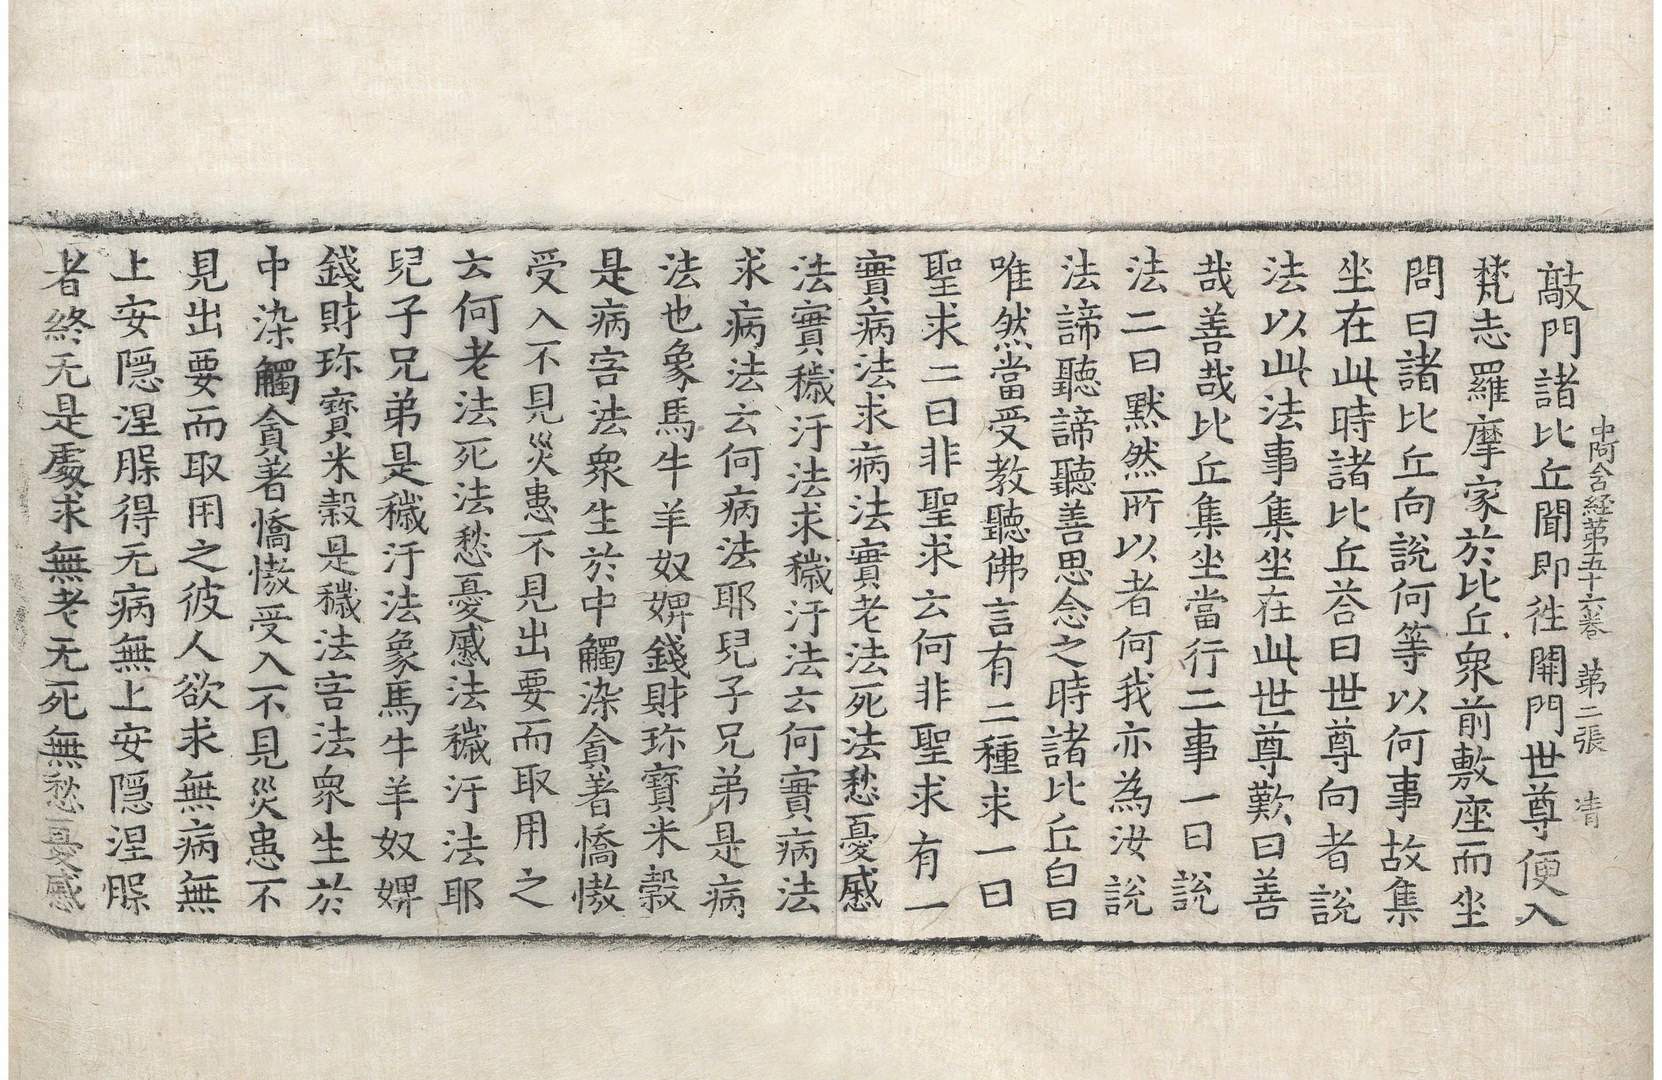 中阿含経第五十六卷 第二張 清
敲門諸比丘聞即徃開門世尊便入
梵志羅摩家於比丘衆前敷座而坐
問曰諸比丘向說何等以何事故集
坐在此時諸比丘荅曰世尊向者說
法以此法事集坐在此世尊歎曰善
哉善哉比丘集坐當行二事一曰說
法二曰默然所以者何我亦為汝說
法諦聽諦聽善思念之時諸比丘白曰
唯然當受教聽佛言有二種求一曰
聖求二曰非聖求云何非聖求有一
實病法求病法實老法死法愁憂慼
法實穢汙法求穢汙法云何實病法
求病法云何病法耶兒子兄弟是病
法也象馬牛羊奴婢錢財珎寶米穀
是病害法衆生於中觸染貪著憍慠
受入不見災患不見出要而取用之
云何老法死法愁憂慼法穢汙法耶
兒子兄弟是穢汙法象馬牛羊奴婢
錢財珎寶米穀是穢法害法衆生於
中染觸貪著憍慠受入不見災患不
見出要而取用之彼人欲求無病無
上安隱涅槃得无病無上安隱涅槃
者終无是處求無老无死無愁憂慼